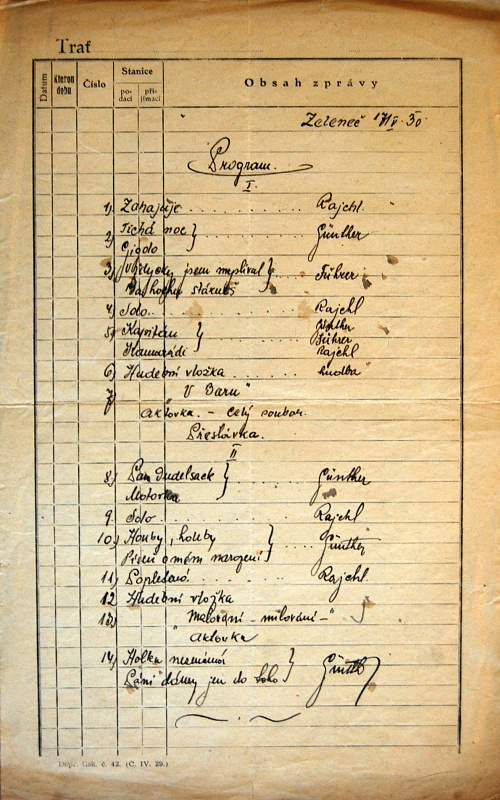 Trať
Datum
Kterou dobu
Číslo
Stanice
po-
dací
při-
jímací
Obsah zprávy
Zeleneč 17/V. 30
Program.
I.
1) Zahajuje Rajchl.
2) Tichá noc
Gigolo } Günther
3) Vždycky jsem myslíval
stárneš } Führer
4) Solo Rajchl
5) Kapitán
Kamarádi }
Führer
Rajchl
6) Hudební vložka hudba
7) "V Baru"
aktovka. – celý soubor.
Přestávka.
II
8) Pan Dudelsack
Motorka } Günther
9. Solo Rajchl
10) Houby, houby
Píseň o mém narození } Günther
11) Popletené Rajchl.
12 Hudební vložka
13) "Malování – milování –"
aktovka
14) Holka neznámá
Páni dámy jen do toho } Günth
Dopr. tisk. č. 42. (Č. IV. 29.)